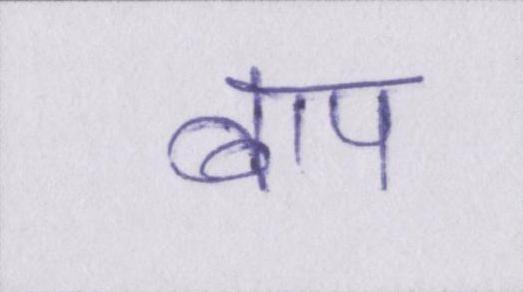 बाप